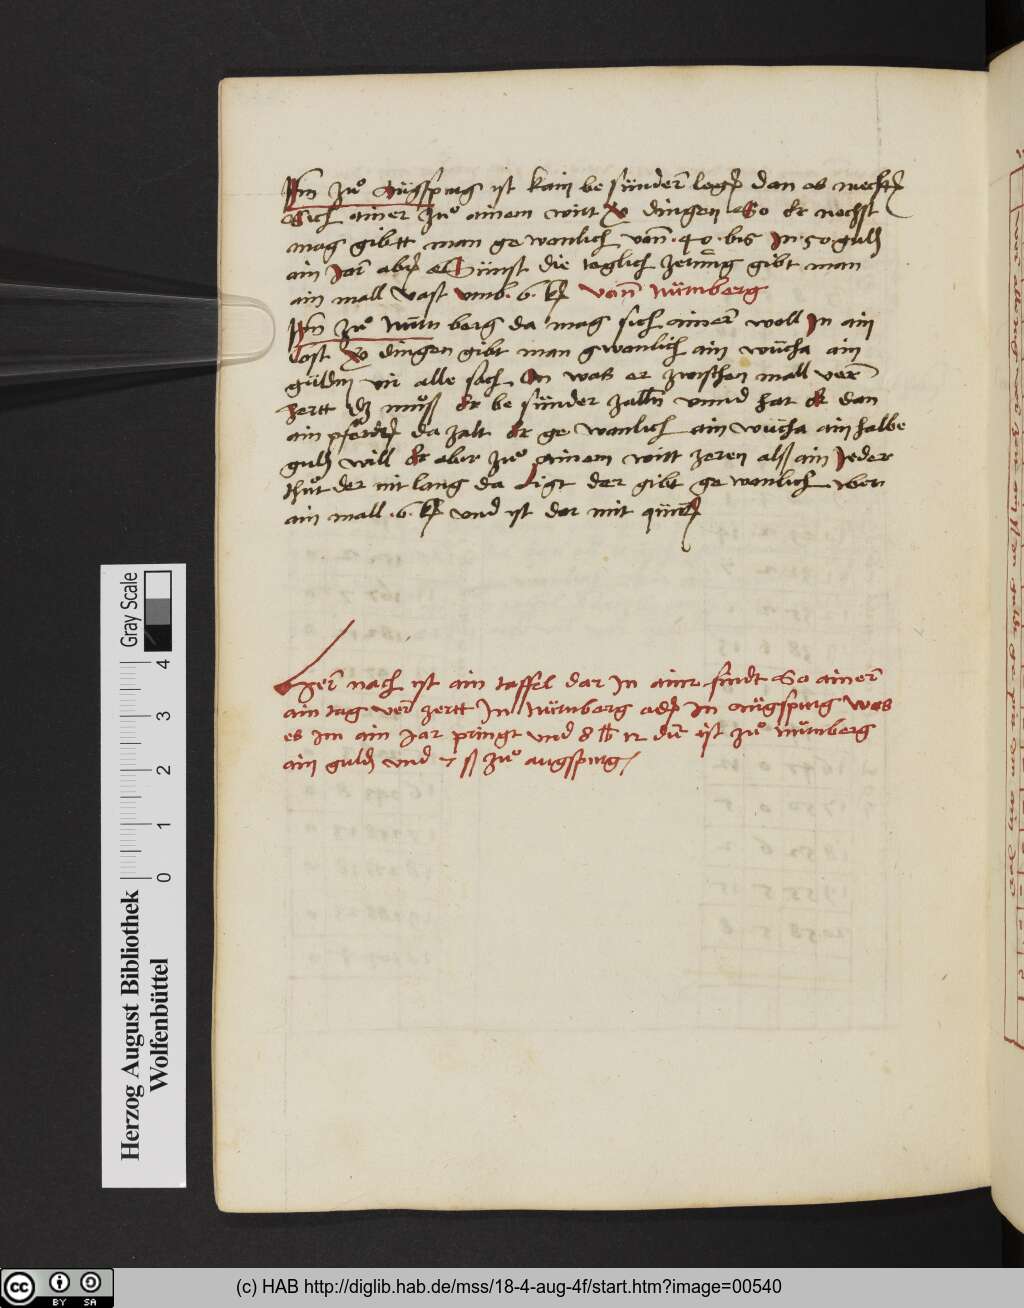 Itm zuͦ Augspurg ist kain be sünder leger dan es mechte
Sich ainer zuͦ ainem wirt ver dingen So er nechst
mag gibtt man ge wonlich vonn .40. bis In .50 guld
ain Jar aber Sünst die teglich zerung gibt man
ain mall vast vmb .6. kr vonn Nürmberg
Itm zuͦ Nürm berg da mag sich ainer woll In ain
cost ver dingen gibt man gwonlich ain wücha ain
güldin vir alle sach On was er zwischen mall ver
zertt dz muͦß Er be sünder zalln vnnd hat Er dan
ain pferdt da zalt Er ge wonlich ain wücha ain halbe
guld will Er aber zuͦ ainem wirt zeren alß ain Jeder
thuͦt der nit lang da Ligt der gibt ge wonlich von
ain mall .6. kr vnd ist dar mit quitt
Her nach ist ain taffel dar In ainer findt So ainer
ain tag ver zertt In Nürmberg oder In Augspurg was
es Im ain Jar pringt vnd 8 lb 12 die ist zuͦ Nürmberg
ain guld vnd 7 ß zuͦ augspurg
Gray Scale
0 1 2 3 4
Herzog August Bibliothek
Wolfenbüttel
cc BY SA
(c) HAB http://diglib.hab.de/mss/18-4-aug-4f/start.htm?image=00540